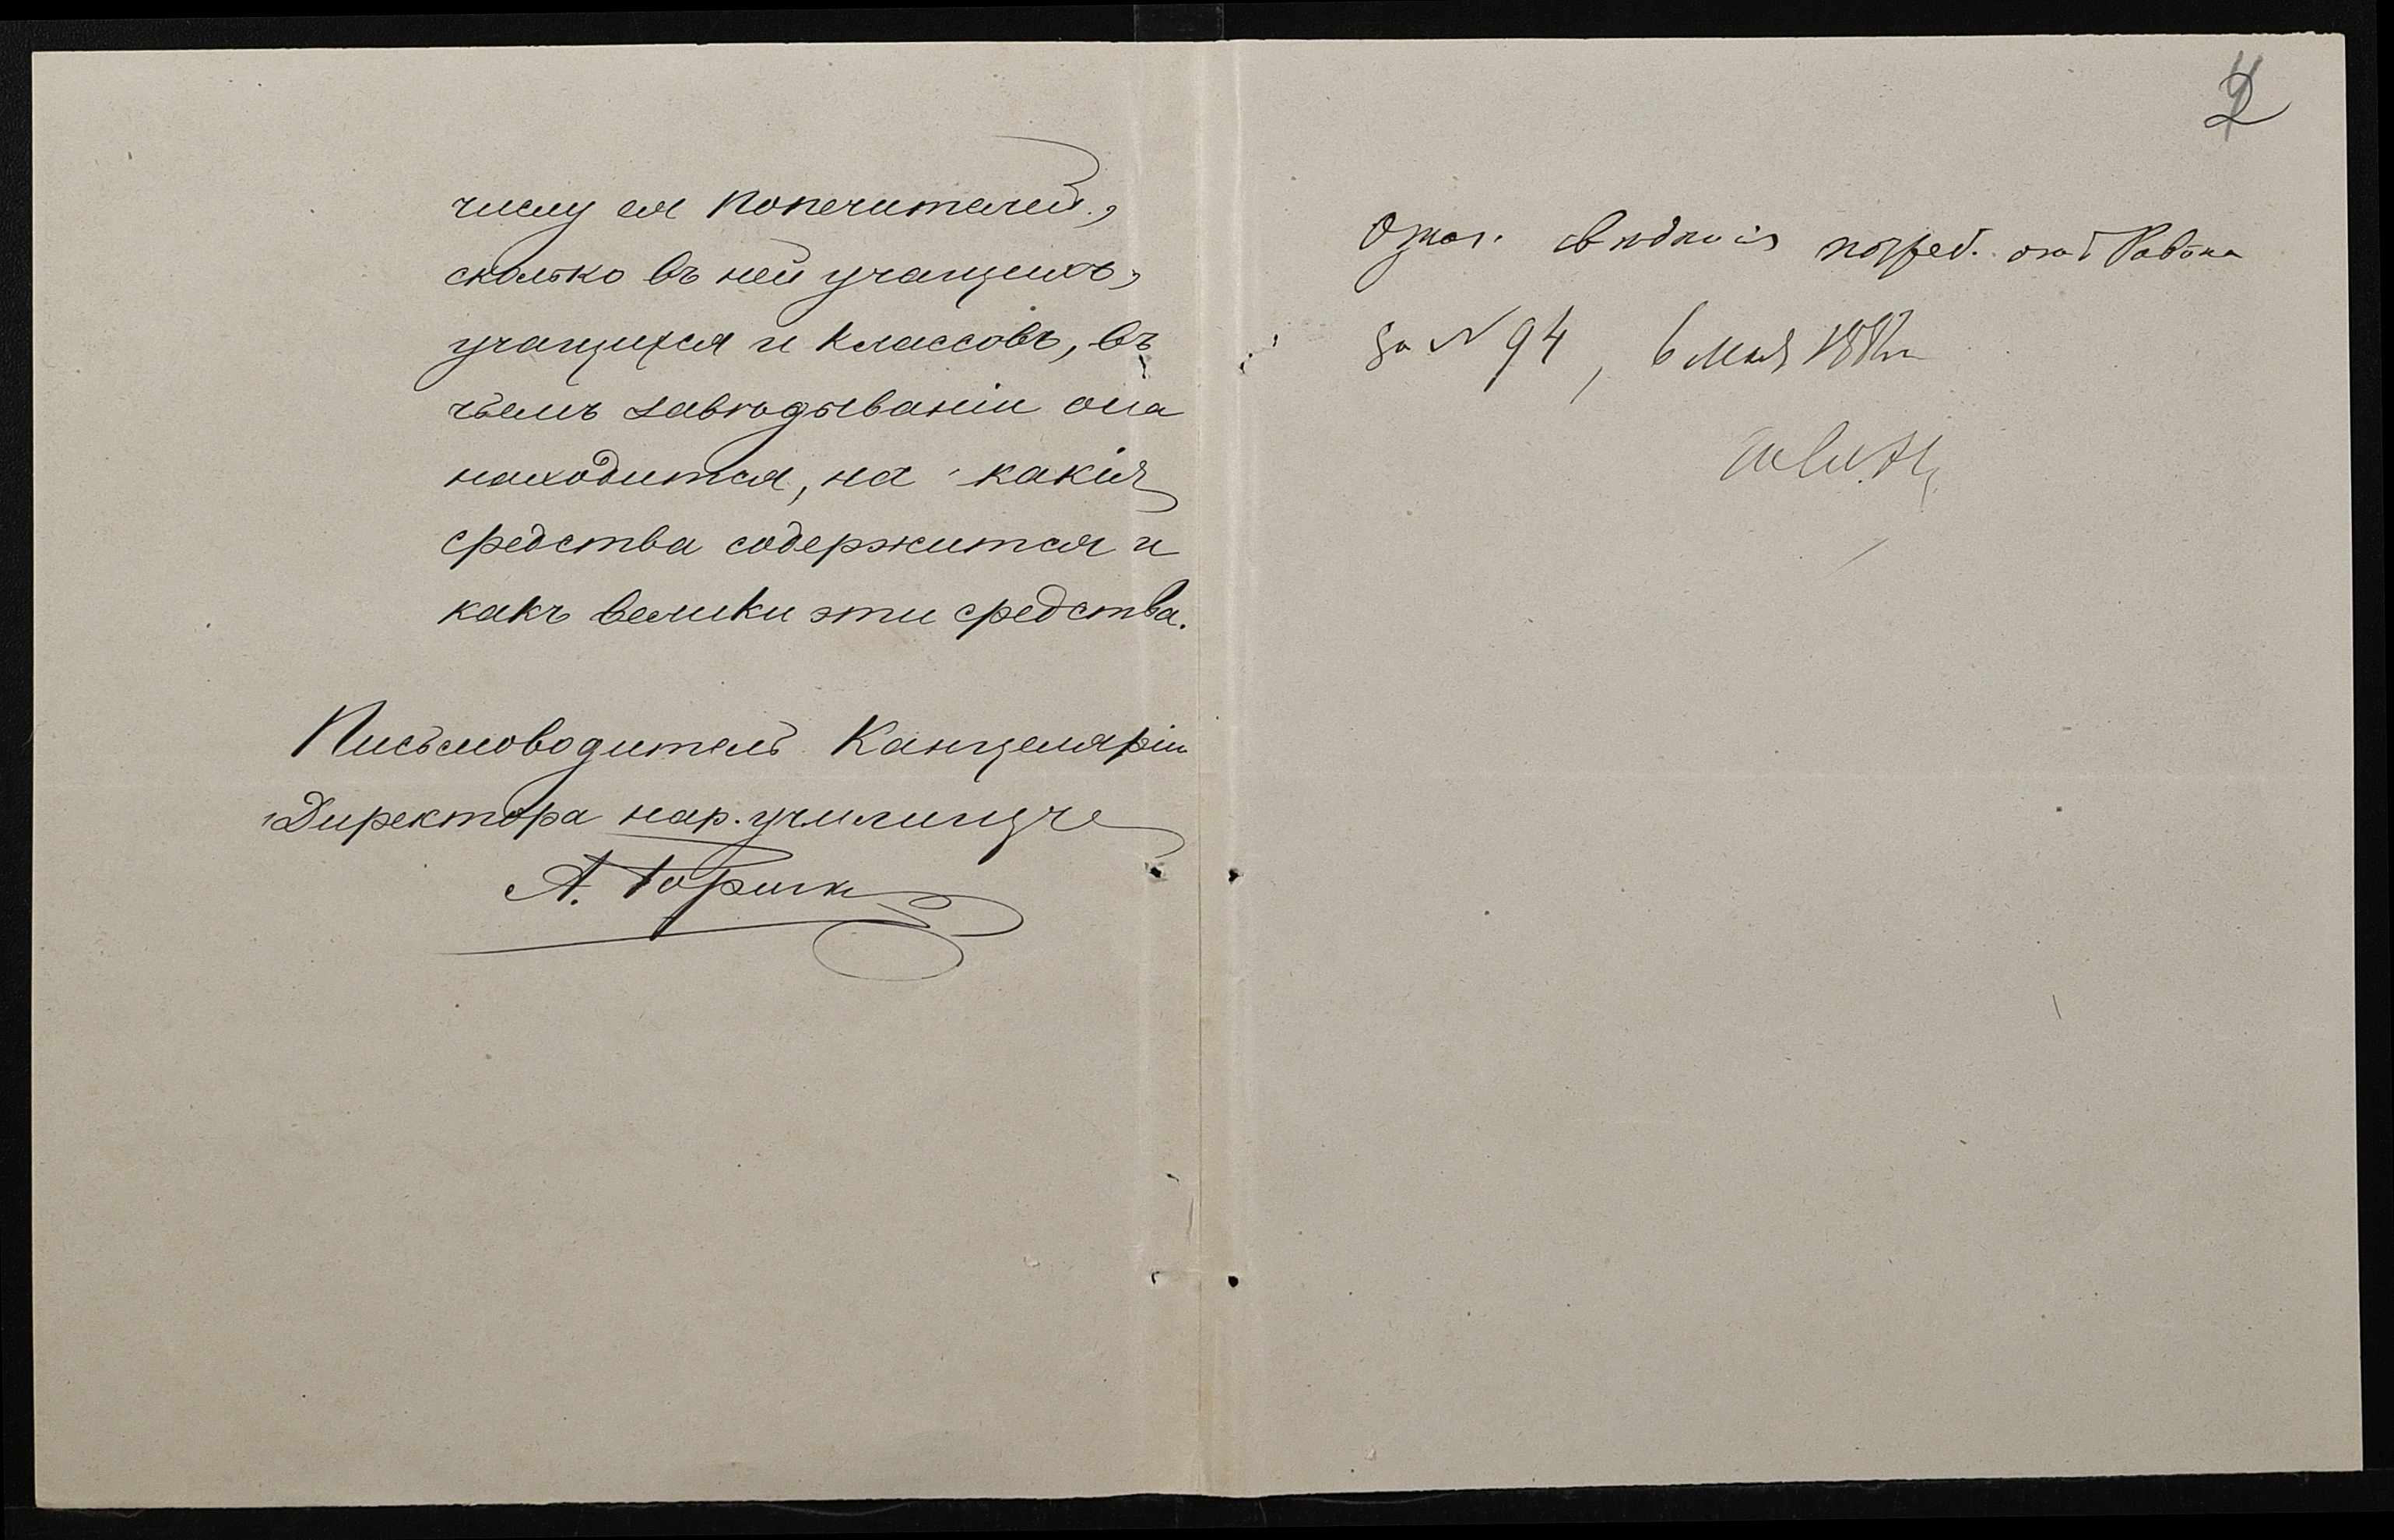 числу ея попечителей,
сколько въ ней учащихъ,
учащихся и классовъ, въ
чьемъ завѣдываніи она
находится, на какія
средства содержится и
какъ велики эти средства.
Письмоводитель Канцеляріи
Директора нар. училищъ
А.
2
свѣдѣнія потреб. отъ
за № 94, 6 Мая